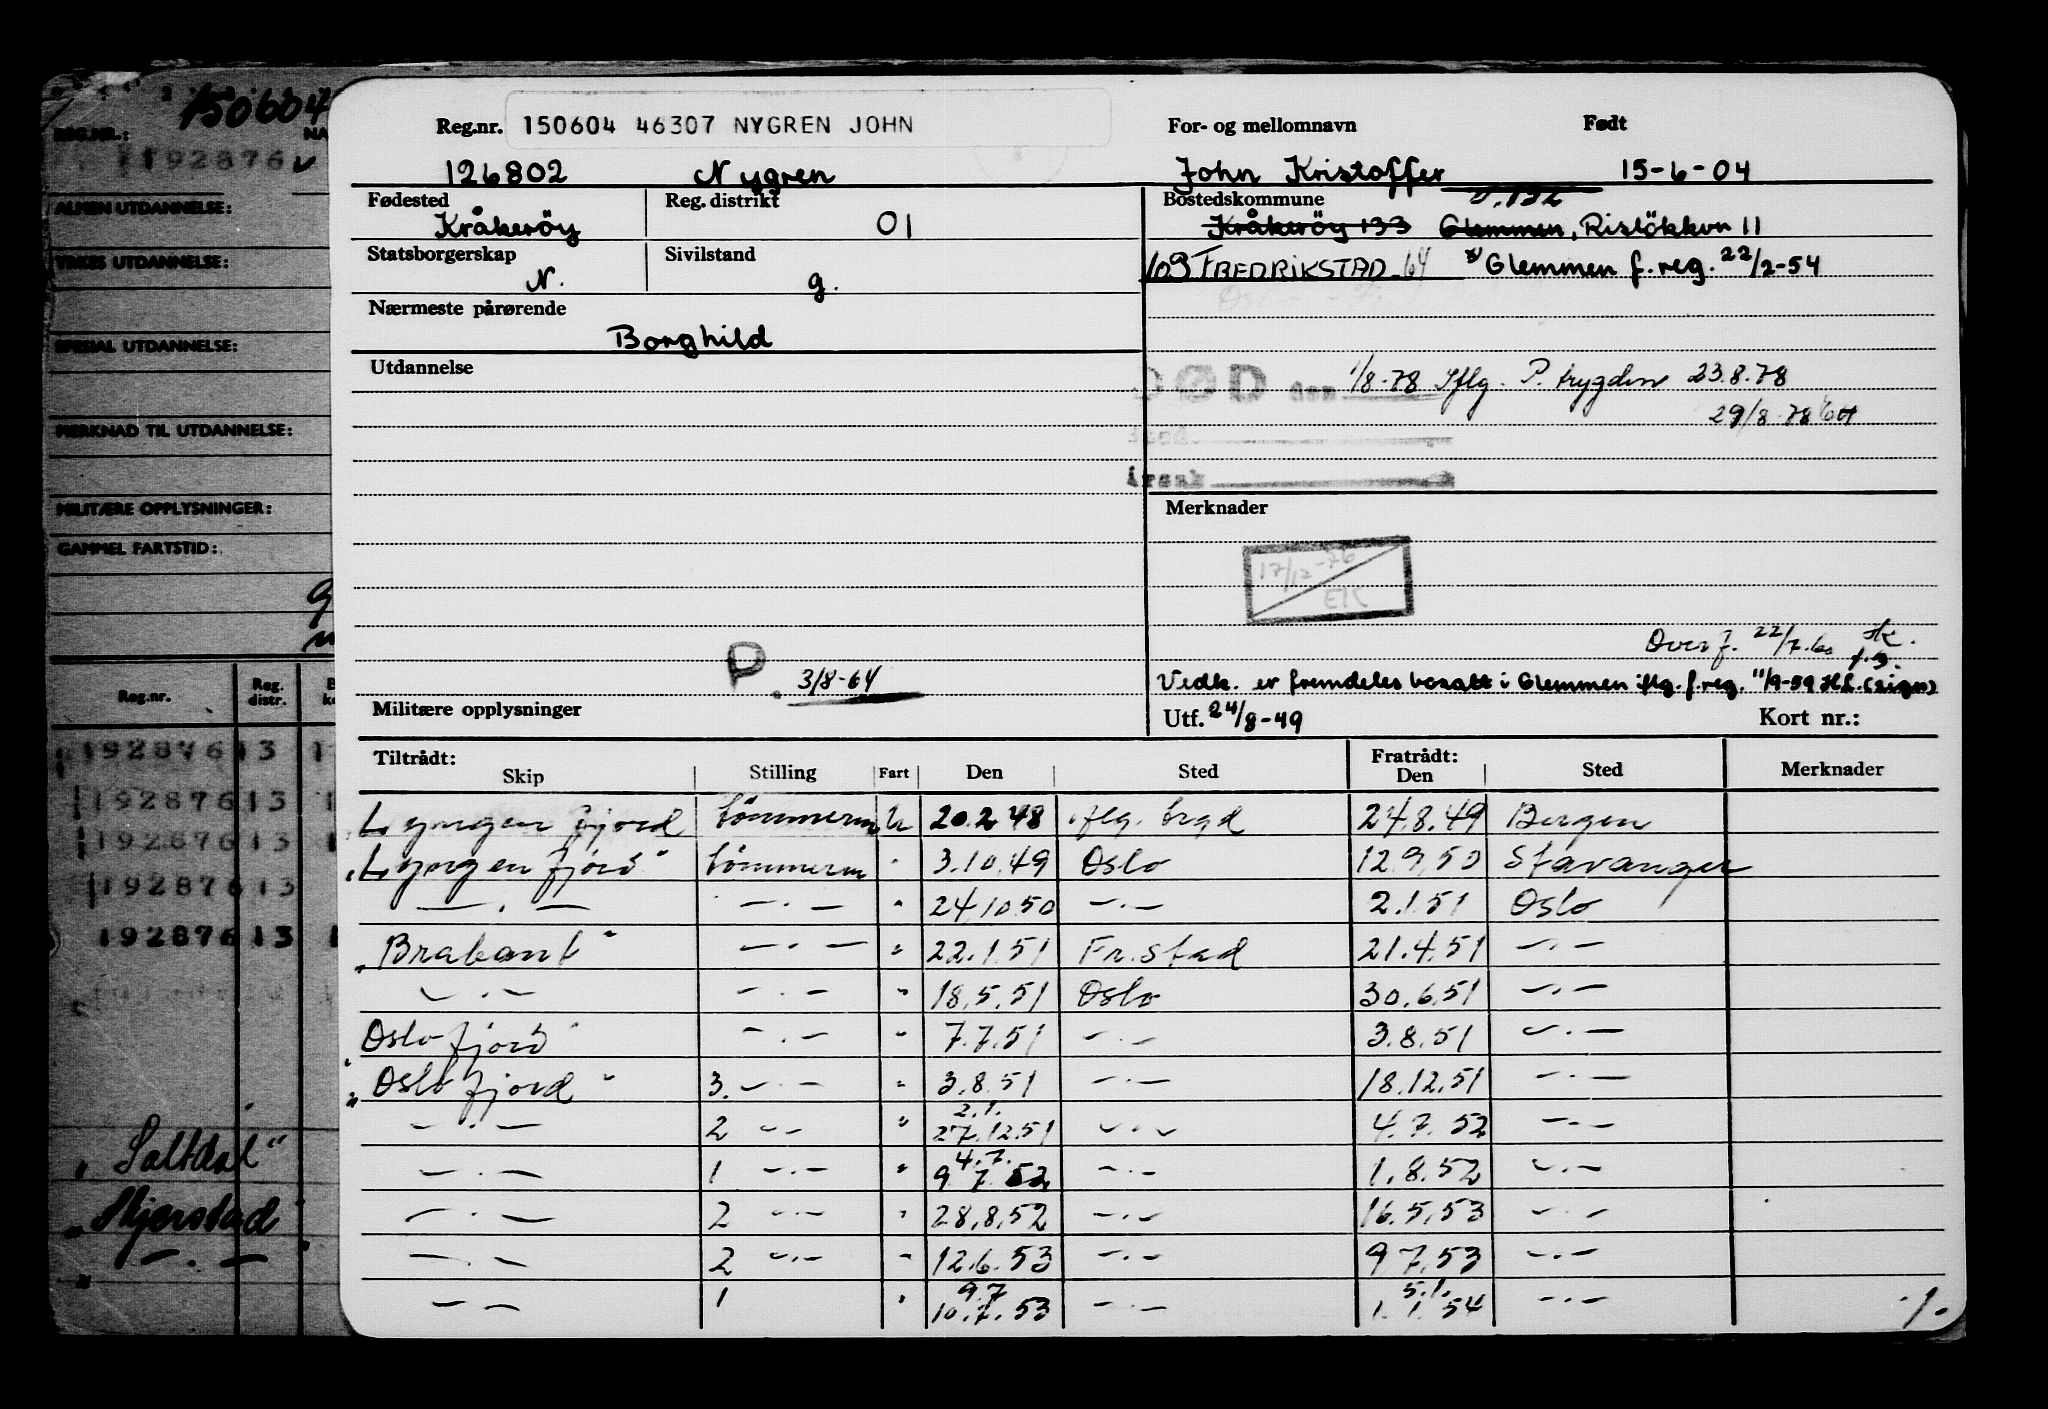 150604
REG.NR.: NA
192876
ALMEN UTDANNELSE:
YRKES UTDANNELSE:
SPESIAL UTDANNELSE:
MERKNAD TIL UTDANNELSE:
MILITÆRE OPPLYSNINGER:
GAMMEL FARTSTID:
Reg.nr. Reg. distr.
192876 13 1
192876 13 1
192876 13 1
192876 13
192876 13 1
"Saltdal"
"Skjerstad"
— . —
Reg.nr. 150604 46307 NYGREN JOHN For- og mellomnavn Født
126802 Nygren John Kristoffer 15-6-04
Fødested Reg. distrikt Bostedskommune
Kråkerøy 01 Kråkerøy 133 Glemmen, Risløkkvn 11
Statsborgerskap Sivilstand
N. g. 109 FREDRIKSTAD 64 Glemmen f.reg. 22/2-54
Nærmeste pårørende
Borghild
Utdannelse
DØD den 1/8-78 Iflg. P. trygden 23.8.78
29/8-78
Årsak
Merknader
17/12-76
EK
Overf. 22/7.60
P. 3/8-64
Vedk. er fremdeles bosatt i Glemmen iflg. f.reg. 11/9-59 H.L. (sign)
Militære opplysninger Utf. 24/8-49 Kort nr.:
Tiltrådt: Fratrådt:
Skip Stilling Fart Den Sted Den Sted Merknader
Lyngenfjord tømmerm U 20.2.48 iflg. brgd 24.8.49 Bergen
"Lyngenfjord" tømmerm " 3.10.49 Oslo 12.9.50 Stavanger
— . — — . — " 24.10.50 — . — 2.1.51 Oslo
"Brabant" — . — " 22.1.51 Fr.stad 21.4.51 — . —
— . — — . — " 18.5.51 Oslo 30.6.51 — . —
Oslofjord — . — " 7.7.51 — . — 3.8.51 — . —
"Oslofjord" 3. — . — " 3.8.51 — . — 18.12.51 — . —
2.1.
— . — 2 — — " 27.12.51 — . — 4.7.52 — . —
4.7.
— . — 1 — . — " 9.7.52 — . — 1.8.52 — . —
— . — 2 — . — " 28.8.52 — . — 16.5.53 — . —
— . — 2 — . — " 12.6.53 — . — 9.7.53 — . —
9.7 5.1.
— — 1 " 10.7.53 — . — 1.1.54 — . —